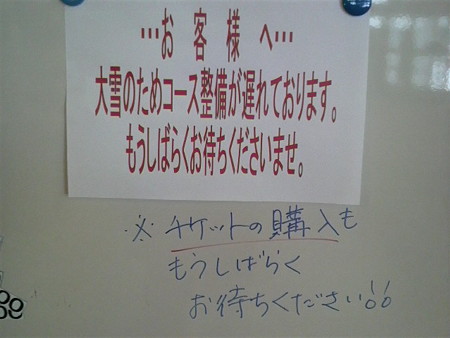 …お客様へ…
大雪のためコース整備が遅れております。
もうしばらくお待ちくださいませ。
※チケットの購入も
もうしばらく
お待ちください!!